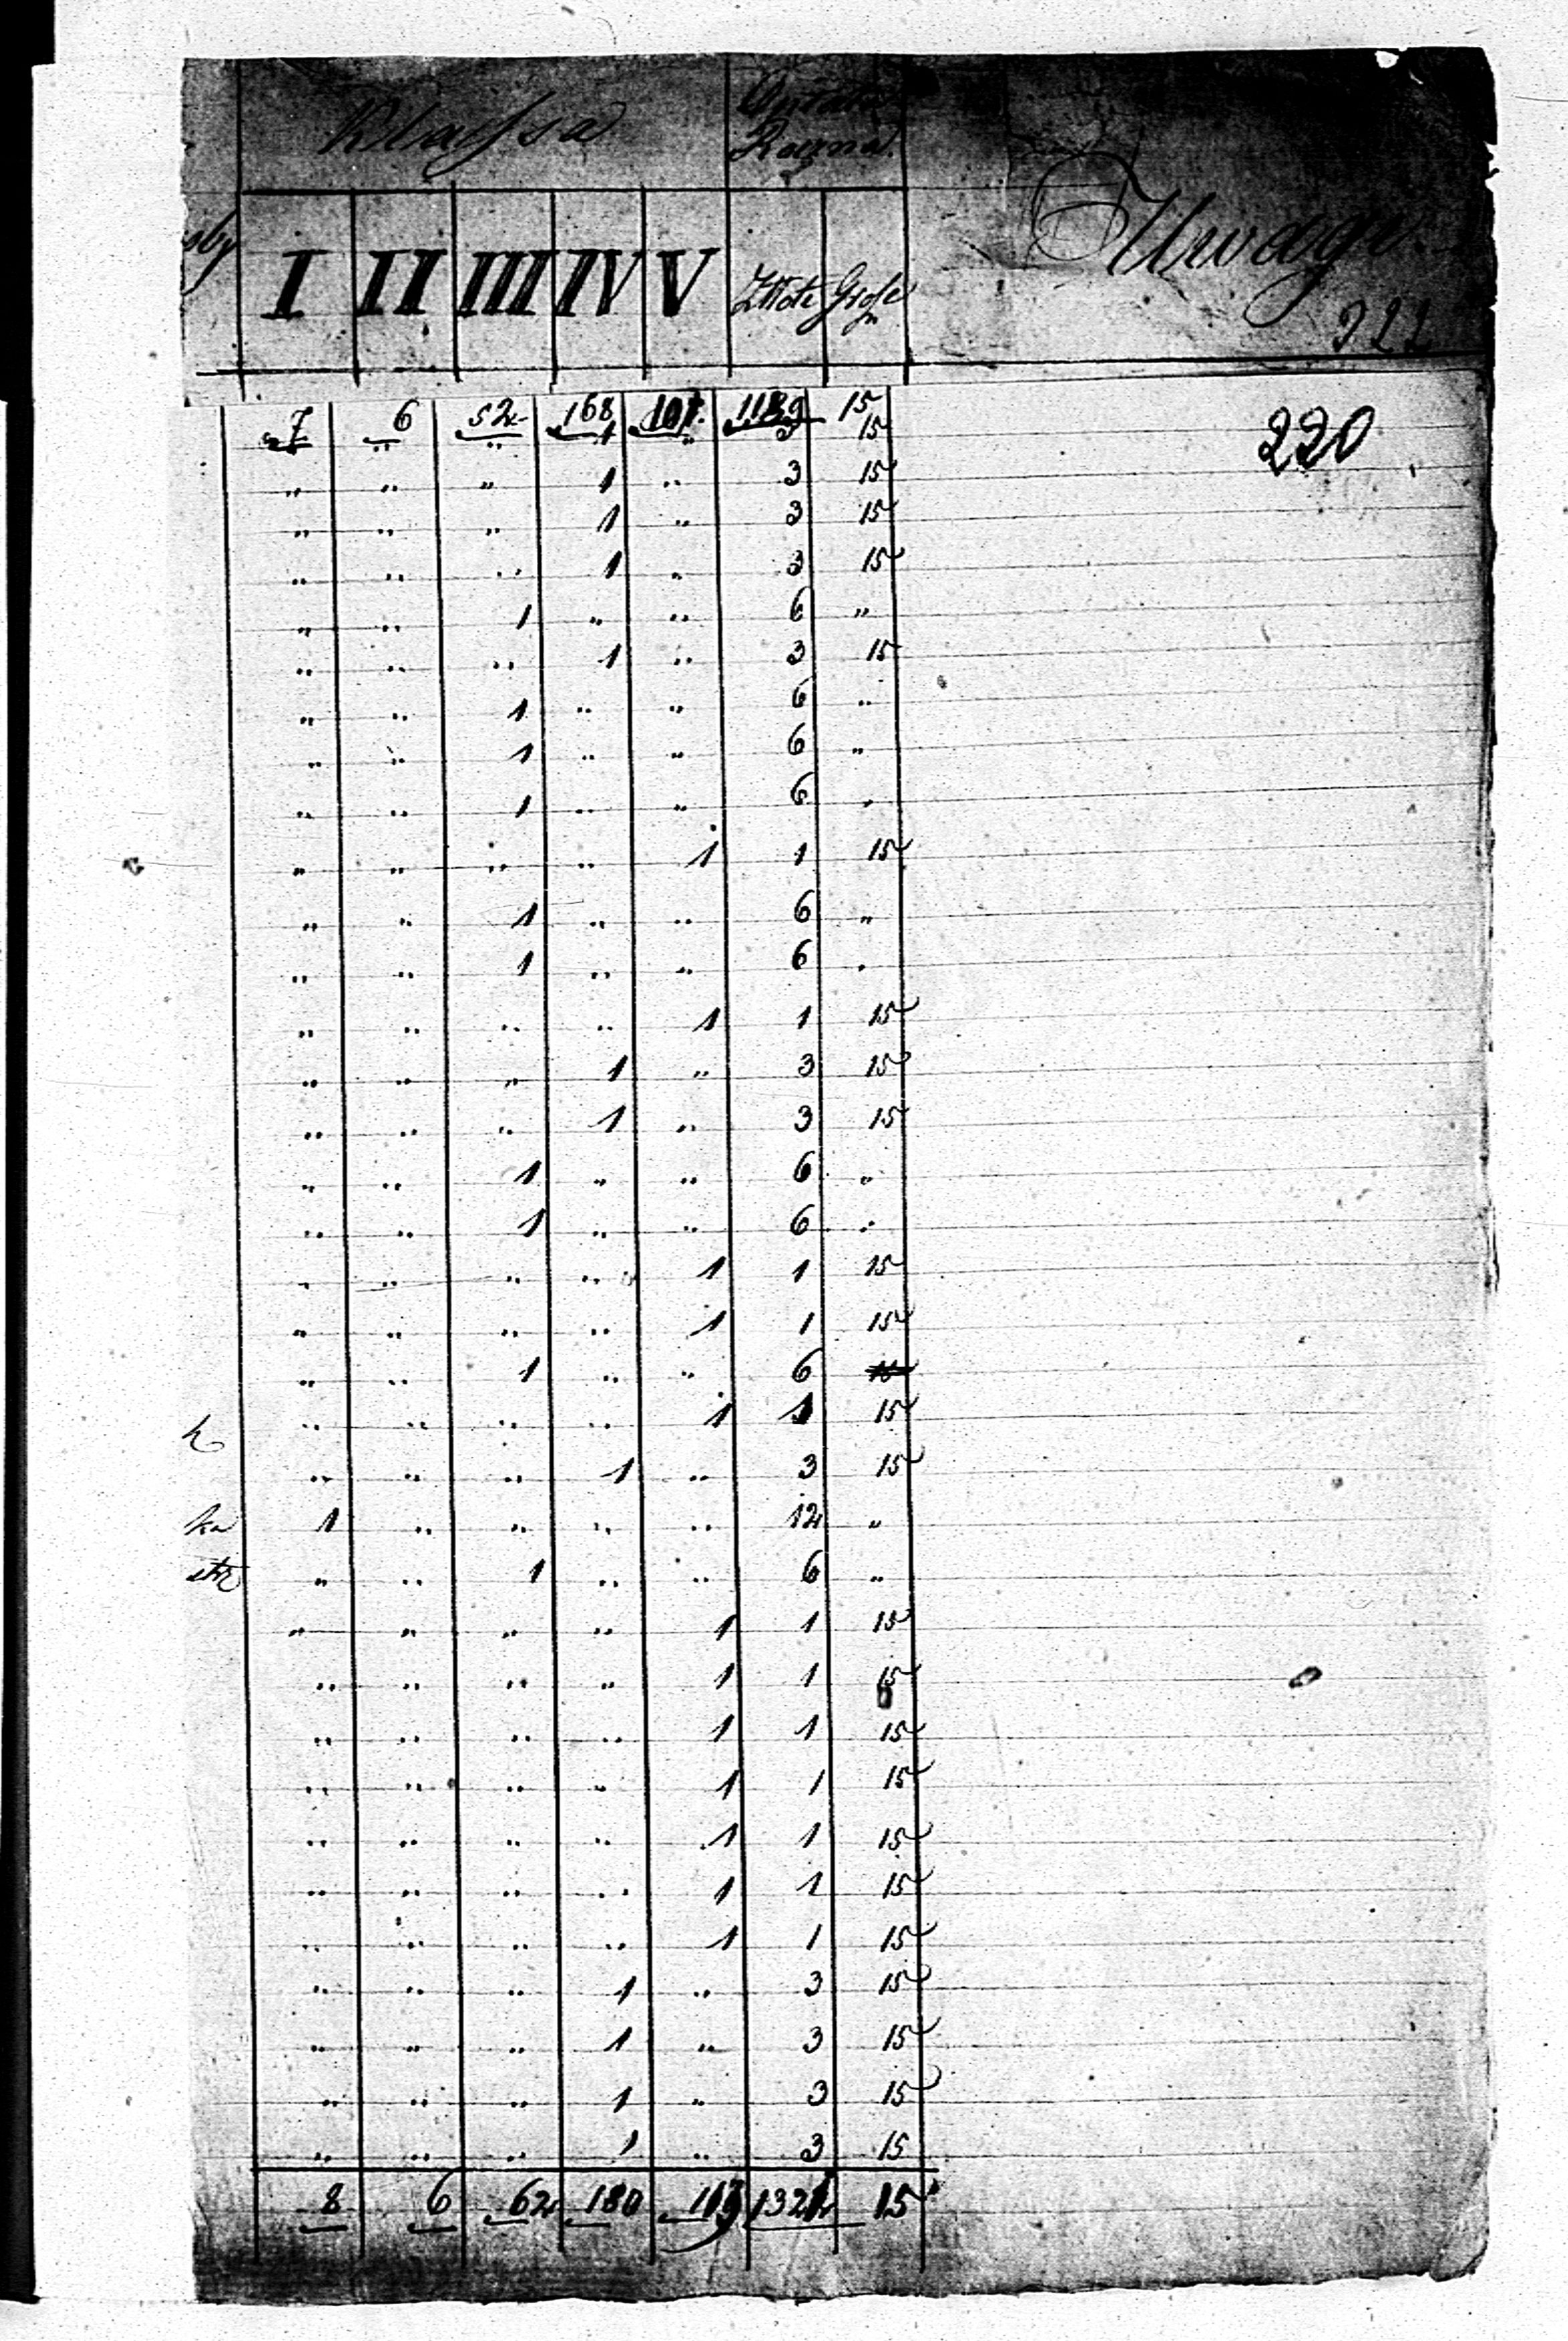 Klassa Roczna
oby I II III IV V Złote Grosze Uwagi
322
7 6 52 168 107 1189 15 220
" " " 1 " 3 15
" " " 1 " 3 15
" " " 1 " 3 15
" " " 1 " 3 15
" " 1 " " 6 "
" " " 1 " 3 15
" " 1 " " 6 "
" " 1 " " 6 "
" " 1 " " 6 "
" " " " 1 1 15
" " 1 " " 6 "
" " 1 " " 6 "
" " " " 1 1 15
" " " 1 " 3 15
" " " 1 " 3 15
" " 1 " " 6 "
" " 1 " " 6 "
" " " " 1 1 15
" " " " 1 1 15
" " 1 " " 6
" " " " 1 1 15
" " " 1 " 3 15
ka 1 " " " " 12 "
" " 1 " " 6 "
" " " " 1 1 15
" " " " 1 1 15
" " " " 1 1 15
" " " " 1 1 15
" " " " 1 1 15
" " " " 1 1 15
" " " " 1 1 15
" " " 1 " 3 15
" " " 1 " 3 15
" " " 1 " 3 15
" " " 1 " 3 15
8 6 62 180 15